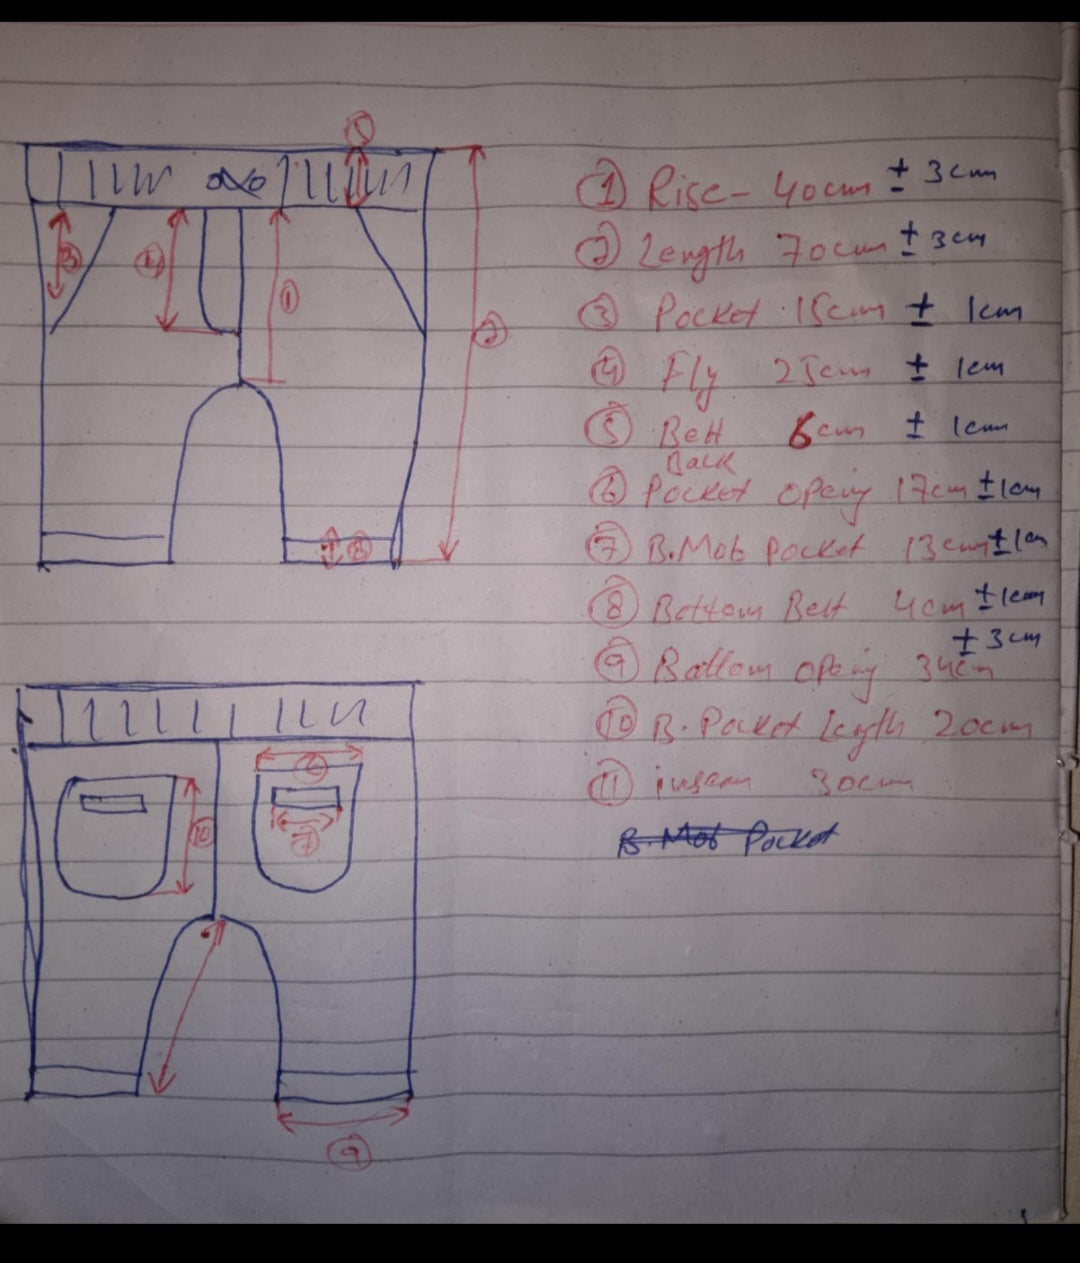 ① Rise - 40cm ± 3cm
② Length 70cm ± 3cm
③ Pocket 15cm ± 1cm
④ Fly 25cm ± 1cm
⑤ Belt 6cm ± 1cm
Back
⑥ Pocket opeing 17cm ± 1cm
⑦ B.Mob pocket 13cm ± 1cm
⑧ Bottom Belt 4cm ± 1cm
± 3cm
⑨ Bottom opeing 34cm
⑩ B. Pocket legth 20cm
⑪ inseam 30cm
B.Mob Pocket
③
④
①
②
⑧
⑥
⑩
⑦
⑨